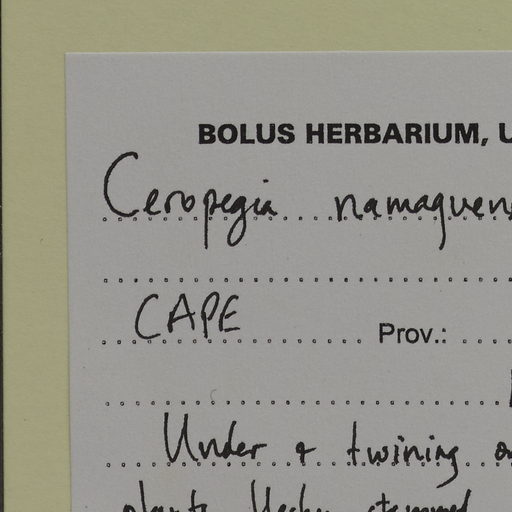 BOLUS HERBARIUM, U
Ceropegia namaquen
CAPE Prov.:
Under & twining
plants. stemmed